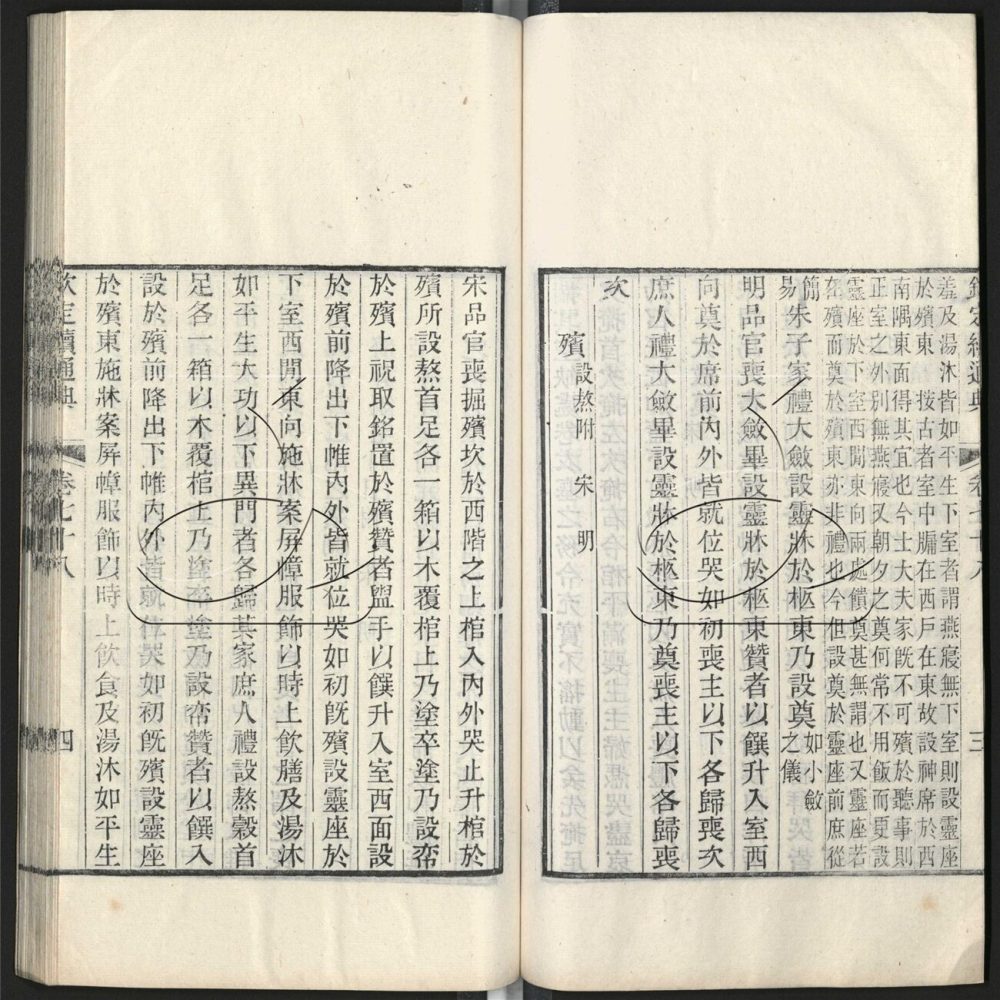 羞及湯沐皆如平生下室者謂燕寢無下室則設靈座
於殯東 按古者室中牖在西戸在東故設神席於西
南隅東面得其宜也今士大夫家既不可殯於聽事則
正室之外別無燕寢又朝夕之奠何常不用飯而更設
靈座於下室西閒東向兩處饋奠甚無謂也又靈座若
在殯而奠於殯東亦非禮也今但設奠於靈座前庶從
簡易
朱子家禮大斂設靈牀於柩東乃設奠如小斂之儀
明品官喪大斂畢設靈牀於柩東贊者以饌升入室西
向奠於席前內外皆就位哭如初喪主以下各歸喪次
庶人禮大斂畢設靈牀於柩東乃奠喪主以下各歸喪
次
殯 設熬附 宋 明
宋品官喪掘殯坎於西階之上棺入內外哭止升棺於
殯所設熬首足各一箱以木覆棺上乃塗卒塗乃設帟
於殯上祝取銘置於殯贊者盥手以饌升入室西面設
於殯前降出下帷內外皆就位哭如初既殯設靈座於
下室西閒東向施牀案屏幛服飾以時上飲膳及湯沐
如平生大功以下異門者各歸其家庶人禮設熬穀首
足各一箱以木覆棺上乃塗卒塗乃設帟贊者以饌入
設於殯前降出下帷內外皆就位哭如初既殯設靈座
於殯東施牀案屏幛服飾以時上飲食及湯沐如平生
欽定續通典 卷七十八 四